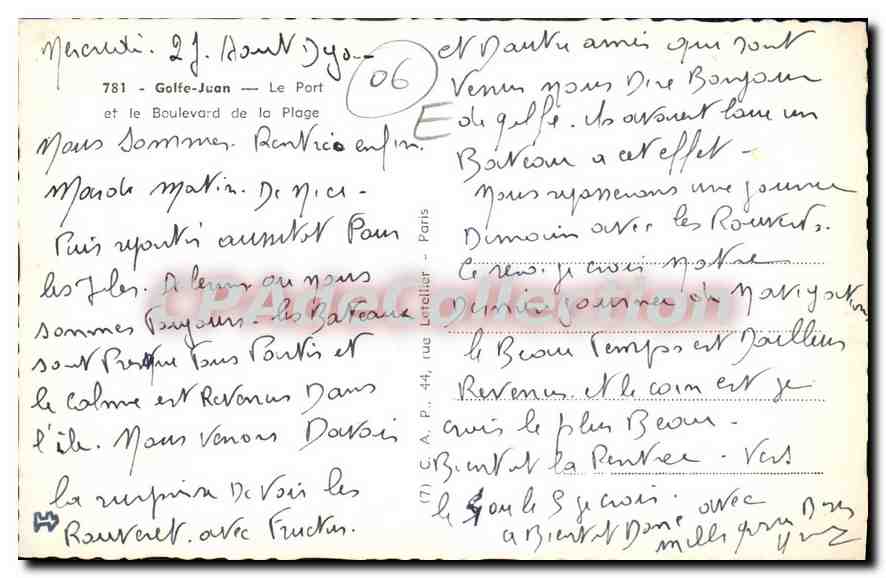 Mercredi. 27. Aout
06
781 - Golfe-Juan — Le Port
et le Boulevard de la Plage
E
Nous Sommes. Rentrés enfin.
Mardi Matin. De Nice -
Puis repartis aussitot Pour
les Iles. De Lerins ou nous
sommes Toujours. les Bateaux
sont Presque Tous Partis et
le calme est Revenus Dans
l'île. Nous venons Davoir
la surprise De voir les
Rouveret. avec
et Dautre amis qui sont
Venus Nous Dire Bonjour
de golfe. ils avaient loué un
Bateau a cet effet -
Nous repasserons une journée
Demain avec les Rouverts.
Ce sera. je crois Notre
Derniere journée de Navigation
le Beau Temps est Dailleurs
Revenus. et le coin est je
crois le plus Beau -
Bientot la Rentrée - Vers
le 4 ou le 5 je crois.
a Bientot Donc avec
mille gros
(7) C. A. P., 44, rue Letellier - Paris
CPAdeCollection